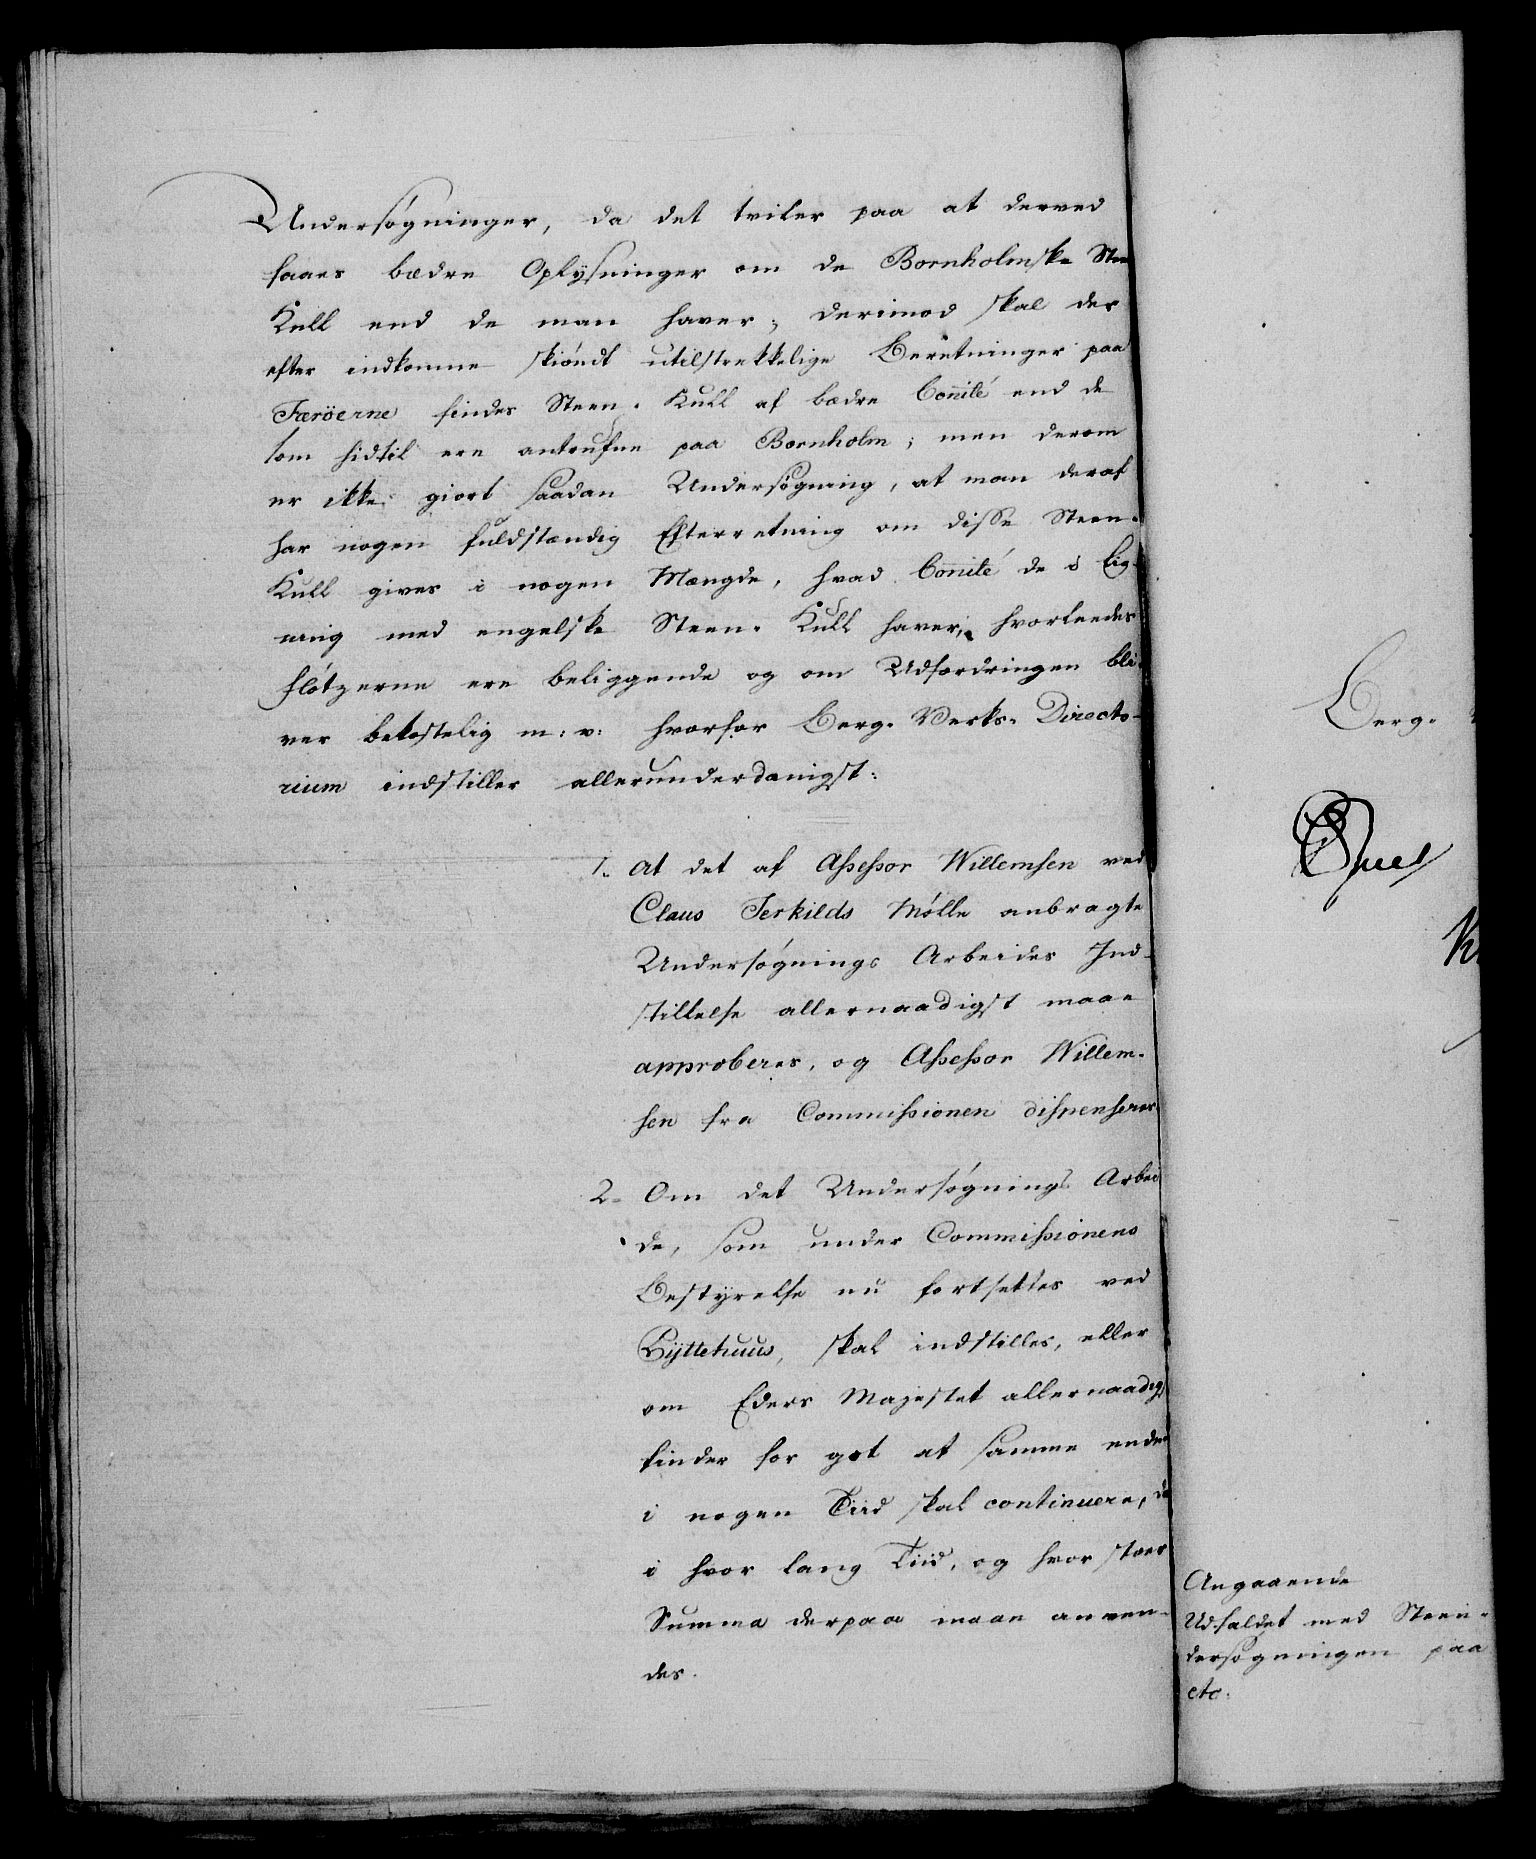 Undersøgninger, da det tviler paa at derved
faaes bædre Oplysninger om de Bornholmske Steen
Kull end de man haver; derimod skal der
efter indkomne skiøndt utilstrekkelige Beretninger paa
Færøerne findes Steen-Kull af bædre Conité end de
som hidtil ere antrufne paa Bornholm; men derom
er ikke giort saadan Undersøgning, at man deraf
har nogen fuldstændig Efterretning om disse Steen-
Kull gives i nogen Mængde, hvad Conité de i Lig-
ning med engelske Steen-Kull haver, hvorleedes
Fløtzerne ere beliggende og om Udfordringen bli-
ver bekostelig m: v: hvorfor Berg-Verks-Directo-
rium indstiller allerunderdanigst:
1. at det af Assessor Willemsen ved
Claus Terkilds Mølle anbragte
Undersøgnings Arbeides Ind-
stillelse allernaadigst maae
approberes, og Assessor Willem-
sen fra Commissionen dispenseres
2. Om det Undersøgnings Arbei
de, som under Commissionens
Bestyrelse nu fortsettes ved
Byttehuus, skal indstilles, eller
om Eders Majestet allernaadigst
finder for got at samme endnu
i nogen Tiid skal continuere, da
i hvor lang Tiid, og hvor stoer
Summa derpaa maae anven-
des.
Berg-
Juel
Angaaende
Udfaldet med Steen-
dersøgningen paa
etc.